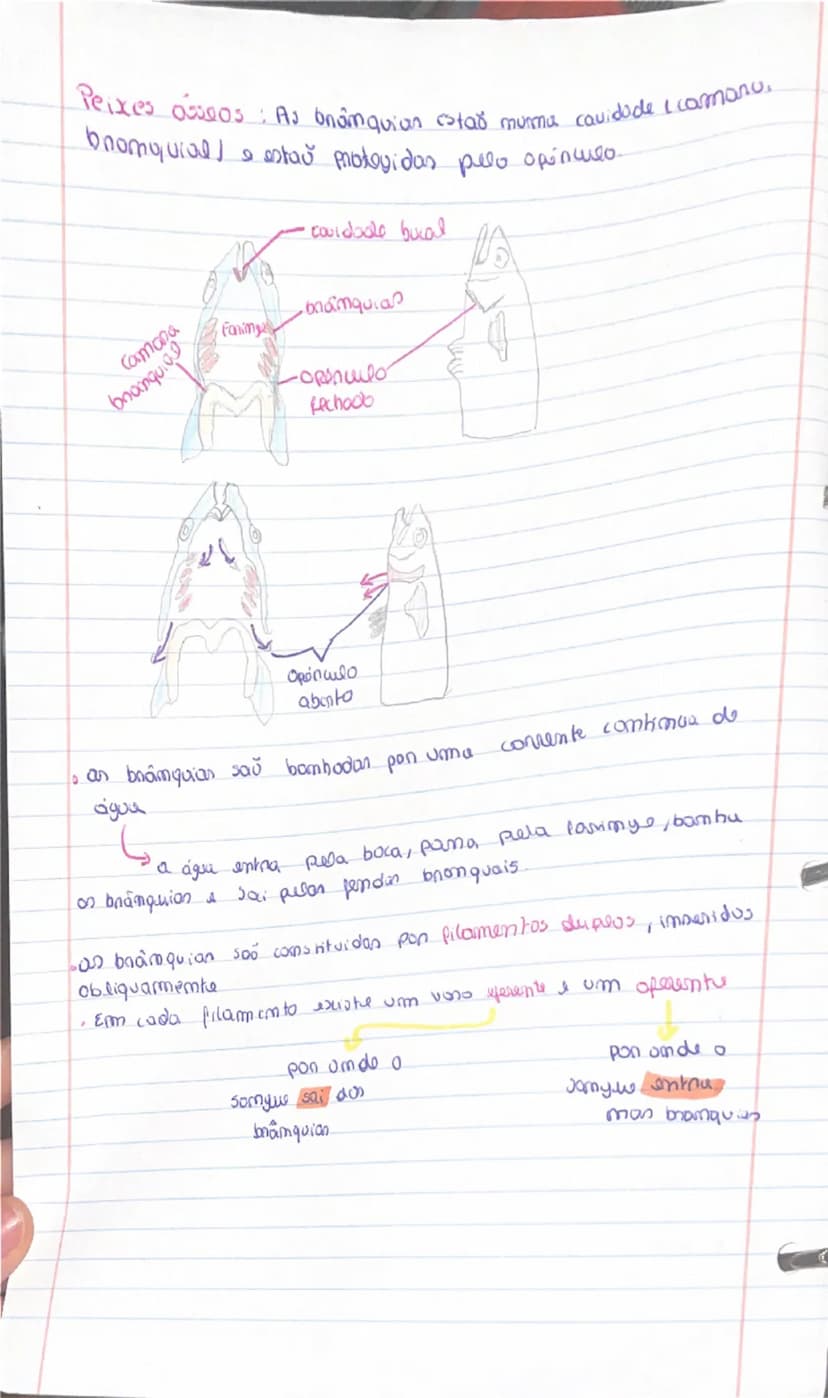 Peixes ósseos : As brânquias estão numa cavidade (camara
branquial) e estão protegidas pelo opérculo.
cavidade bucal
brânquias
Faringe
camara
branquial
opérculo
fechado
opérculo
aberto
• as brânquias são banhadas por uma corrente continua de
água
a água entra pela boca, passa pela faringe, banha
as brânquias e sai pelas fendas branquais.
• as brânquias são constituidas por filamentos duplos, inseridos
obliquarmente
• Em cada filamento existe um vaso eferente e um aferente
por onde o
sangue sai das
brânquias
por onde o
sangue entra
nas branquias